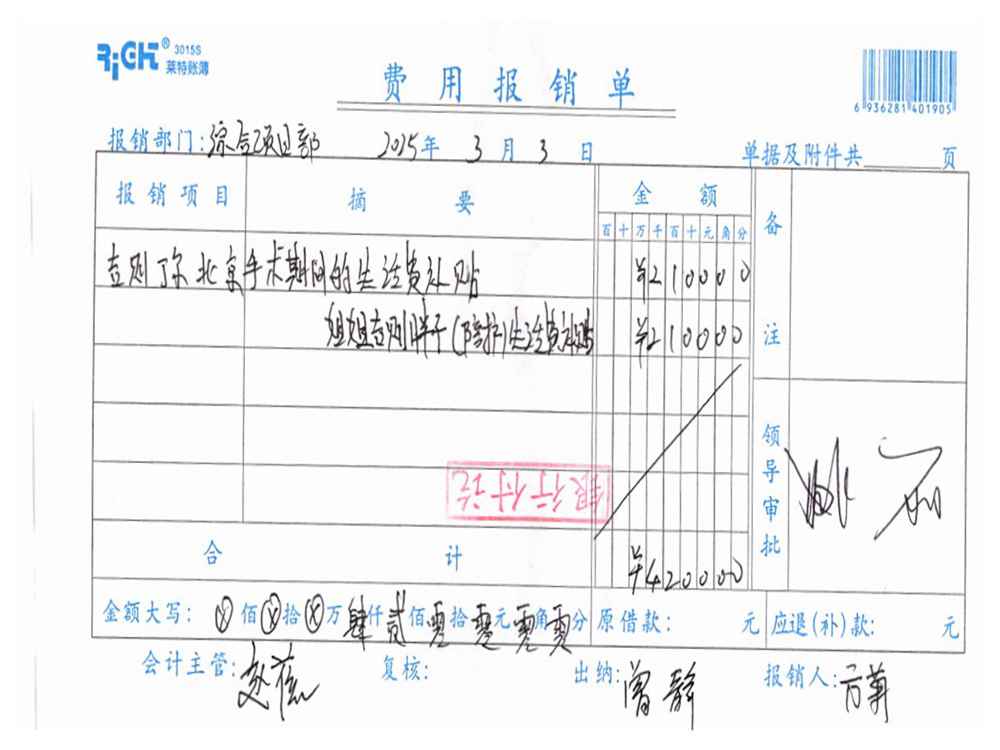 RiGHT® 3015S
莱特账簿
费用报销单
6 936281 401905
报销部门:综合项目部 2025年 3月 3日 单据及附件共 页
报销项目 摘要 金额 备注
百十万千百十元角分
吉则丁尔北京手术期间的生活费补贴 ¥210000
姐姐吉则胖子(陪护)生活费补贴 ¥210000
银行付讫
领导审批
合计 ¥420000
金额大写: ⓧ佰ⓧ拾ⓧ万肆仟贰佰零拾零元零角零分 原借款: 元 应退(补)款: 元
会计主管: 复核: 出纳:曾静 报销人: